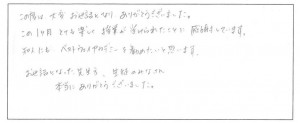 この度は 大変 お世話となり ありがとうございました。
この1ヶ月 とても楽しく 授業が 受けられたことに 感謝しています。
にも ベトナム を勧めたいと思います。
お世話となった先生方、生徒のみなさん
本当に ありがとうございました。